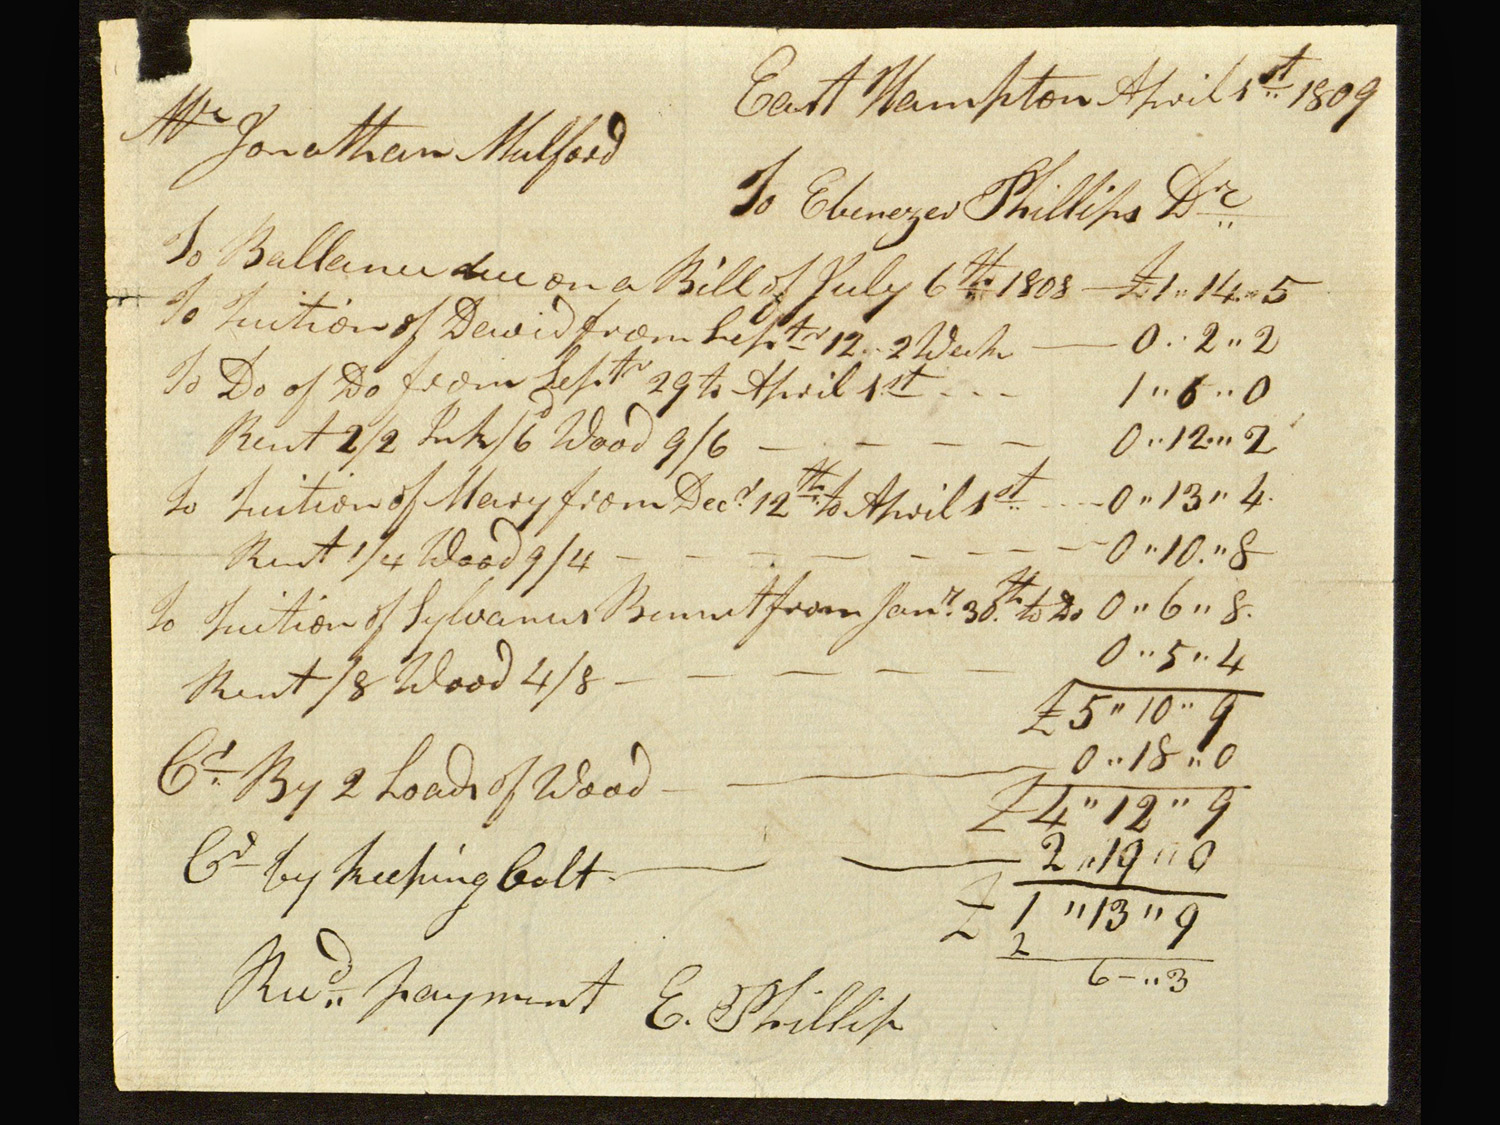 East Hampton April 1st 1809
Mr Jonathan Mulford
To Ebenezer Phillips Dr
To Ballance due on a Bill of July 6th 1808 — £1 " 14 " 5
To Tuition of David from Septr 12 .. 2 Week — 0 .. 2 " 2
To Do of Do from Septr 29 to April 1st - - - 1 " 6 " 0
Rent 2/2 Ink /6d Wood 9/6 — — — — 0 " 12 " 2
To Tuition of Mary from Decr 12th to April 1st - - - 0 " 13 " 4
Rent 1/4 Wood 9/4 — — — — — — — 0 " 10 " 8
To Tuition of Sylvanus Bennet from Jany 30th to Do 0 " 6 " 8
Rent /8 Wood 4/8 — — — — — 0 " 5 " 4
£5 " 10 " 9
Cr By 2 Loads of Wood — — 0 " 18 " 0
£4 " 12 " 9
Cr by keeping Colt — — 2 " 19 " 0
£ 1 " 13 " 9
2
6 - " 3
Recd payment E. Phillips